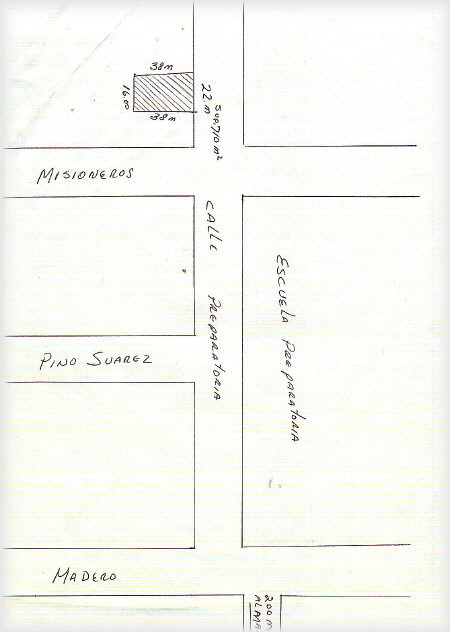 38m
16.00
22.m
38m
SUP.710 m²
MISIONEROS
CALLE PREPARATORIA
ESCUELA PREPARATORIA
PINO SUAREZ
MADERO
200 m
ALAMA